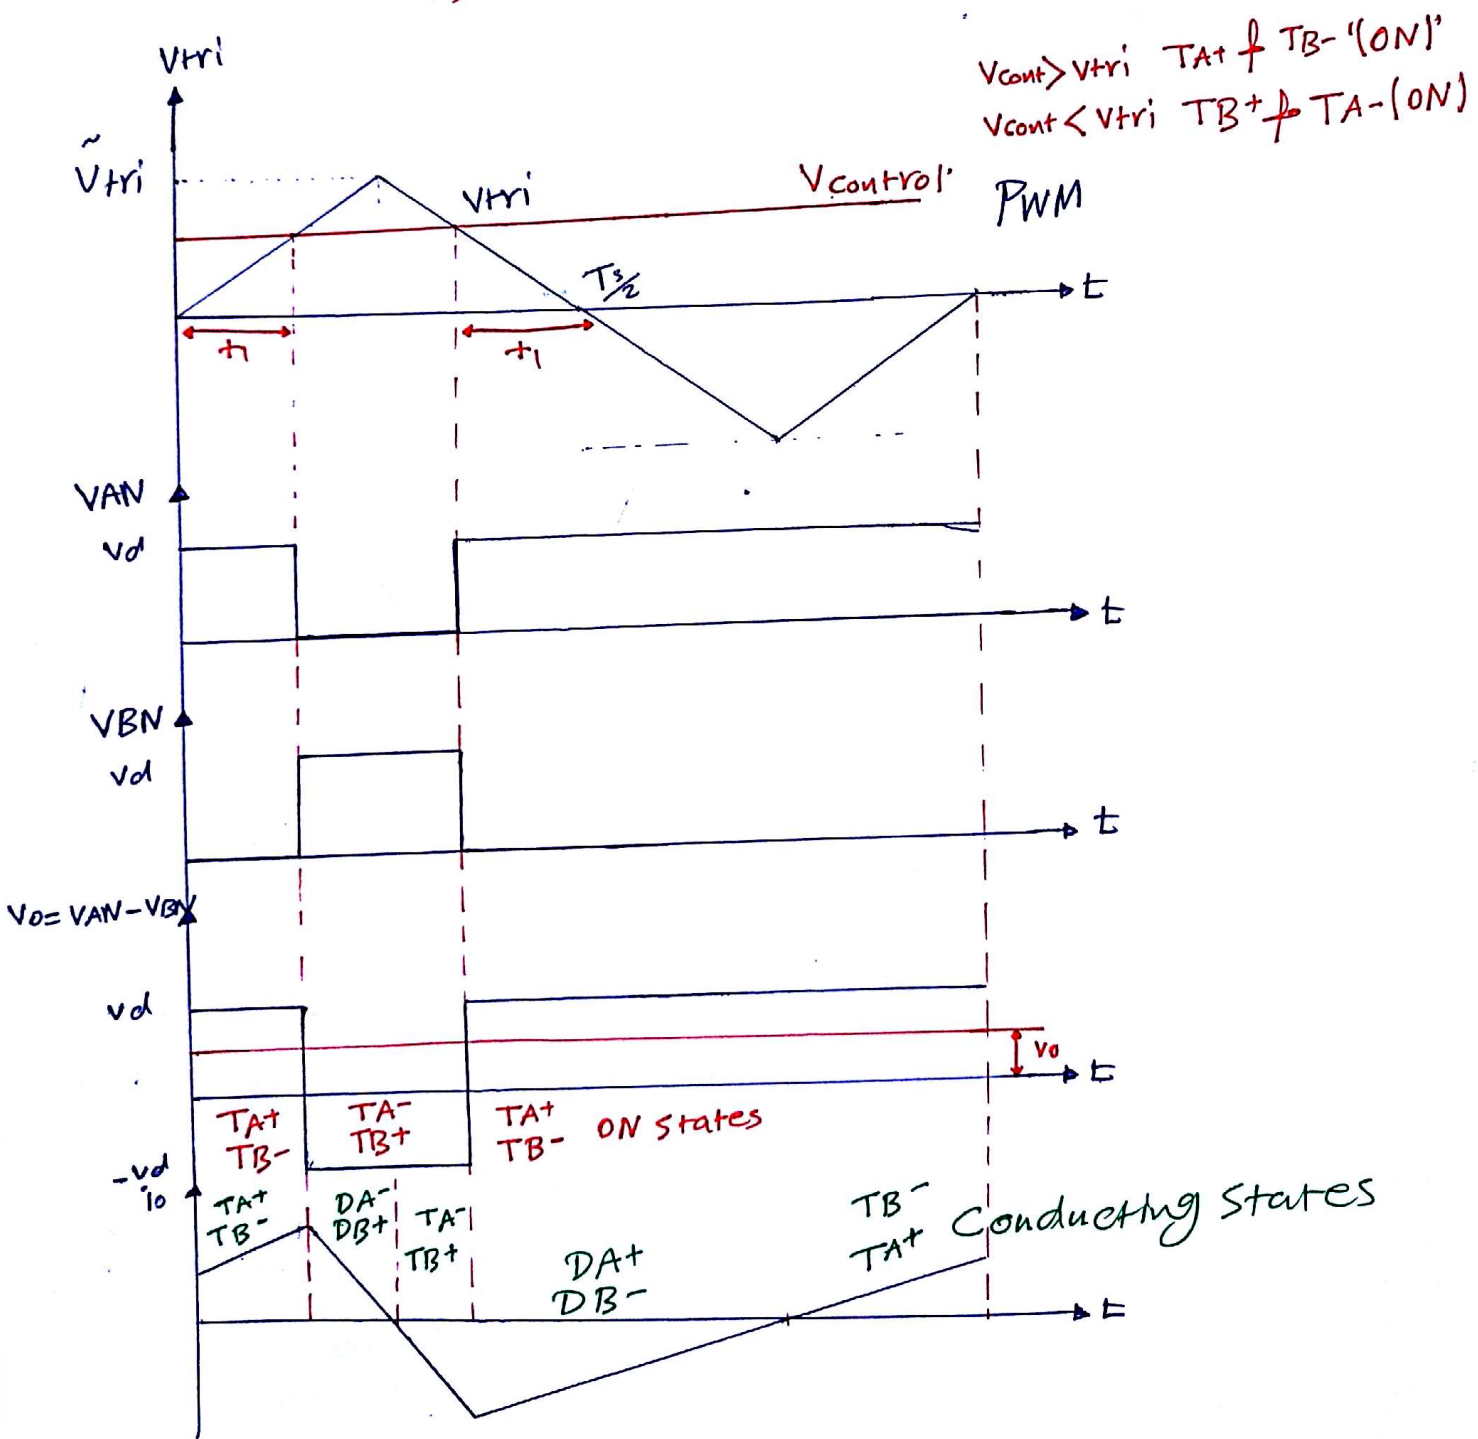 Vtri
Vcont>Vtri TA+ & TB- "(ON)"
Vcont<Vtri TB+ & TA-(ON)
Ṽtri
Vtri
Vcontrol
PWM
Ts/2
t
t1
t1
VAN
Vd
t
VBN
Vd
t
Vo=VAN-VBN
Vd
Vo
t
TA+
TB-
TA-
TB+
TA+
TB-
ON states
-Vd
io
TA+
TB-
DA-
DB+
TA-
TB+
DA+
DB-
TB-
TA+
Conducting states
t